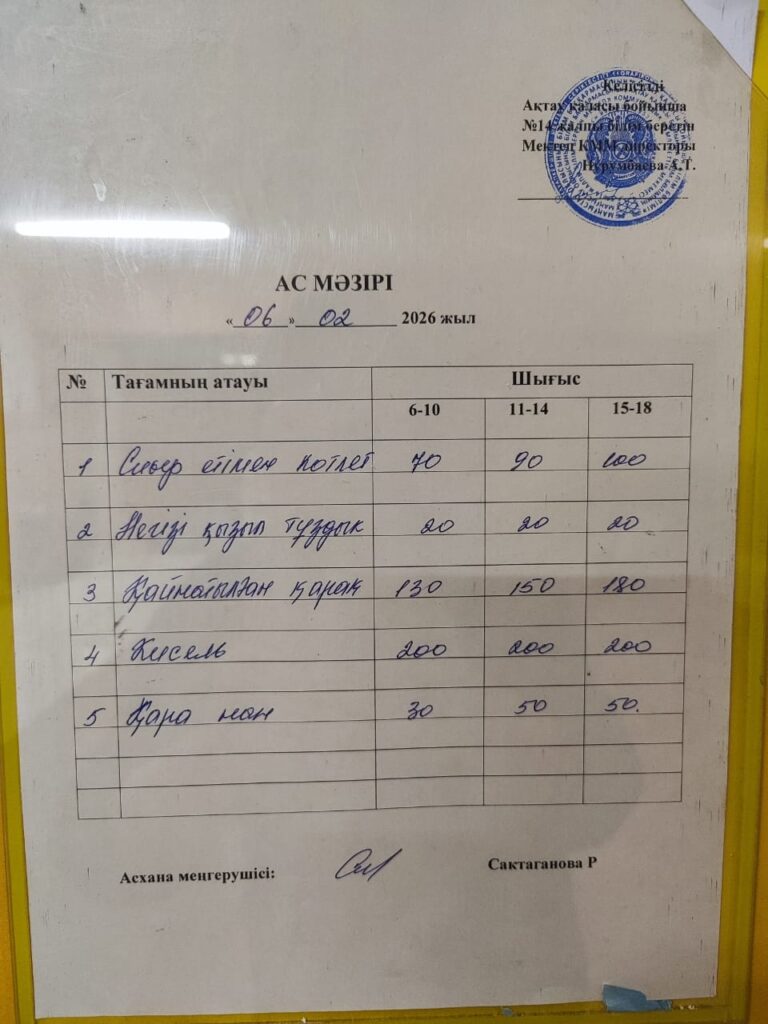 Келісілді
Ақтау қаласы бойынша
№14 жалпы білім беретін
Мектеп КММ директоры
Нурумбаева А.Т.
АС МӘЗІРІ
« 06 » 02 2026 жыл
№ Тағамның атауы Шығыс
6-10 11-14 15-18
1 Сиыр етімен котлет 70 90 100
2 Негізі қызыл тұздық 20 20 20
3 Қайнатылған қарақ 130 150 180
4 Кисель 200 200 200
5 Қара нан 30 50 50.
Асхана меңгерушісі: Сактаганова Р